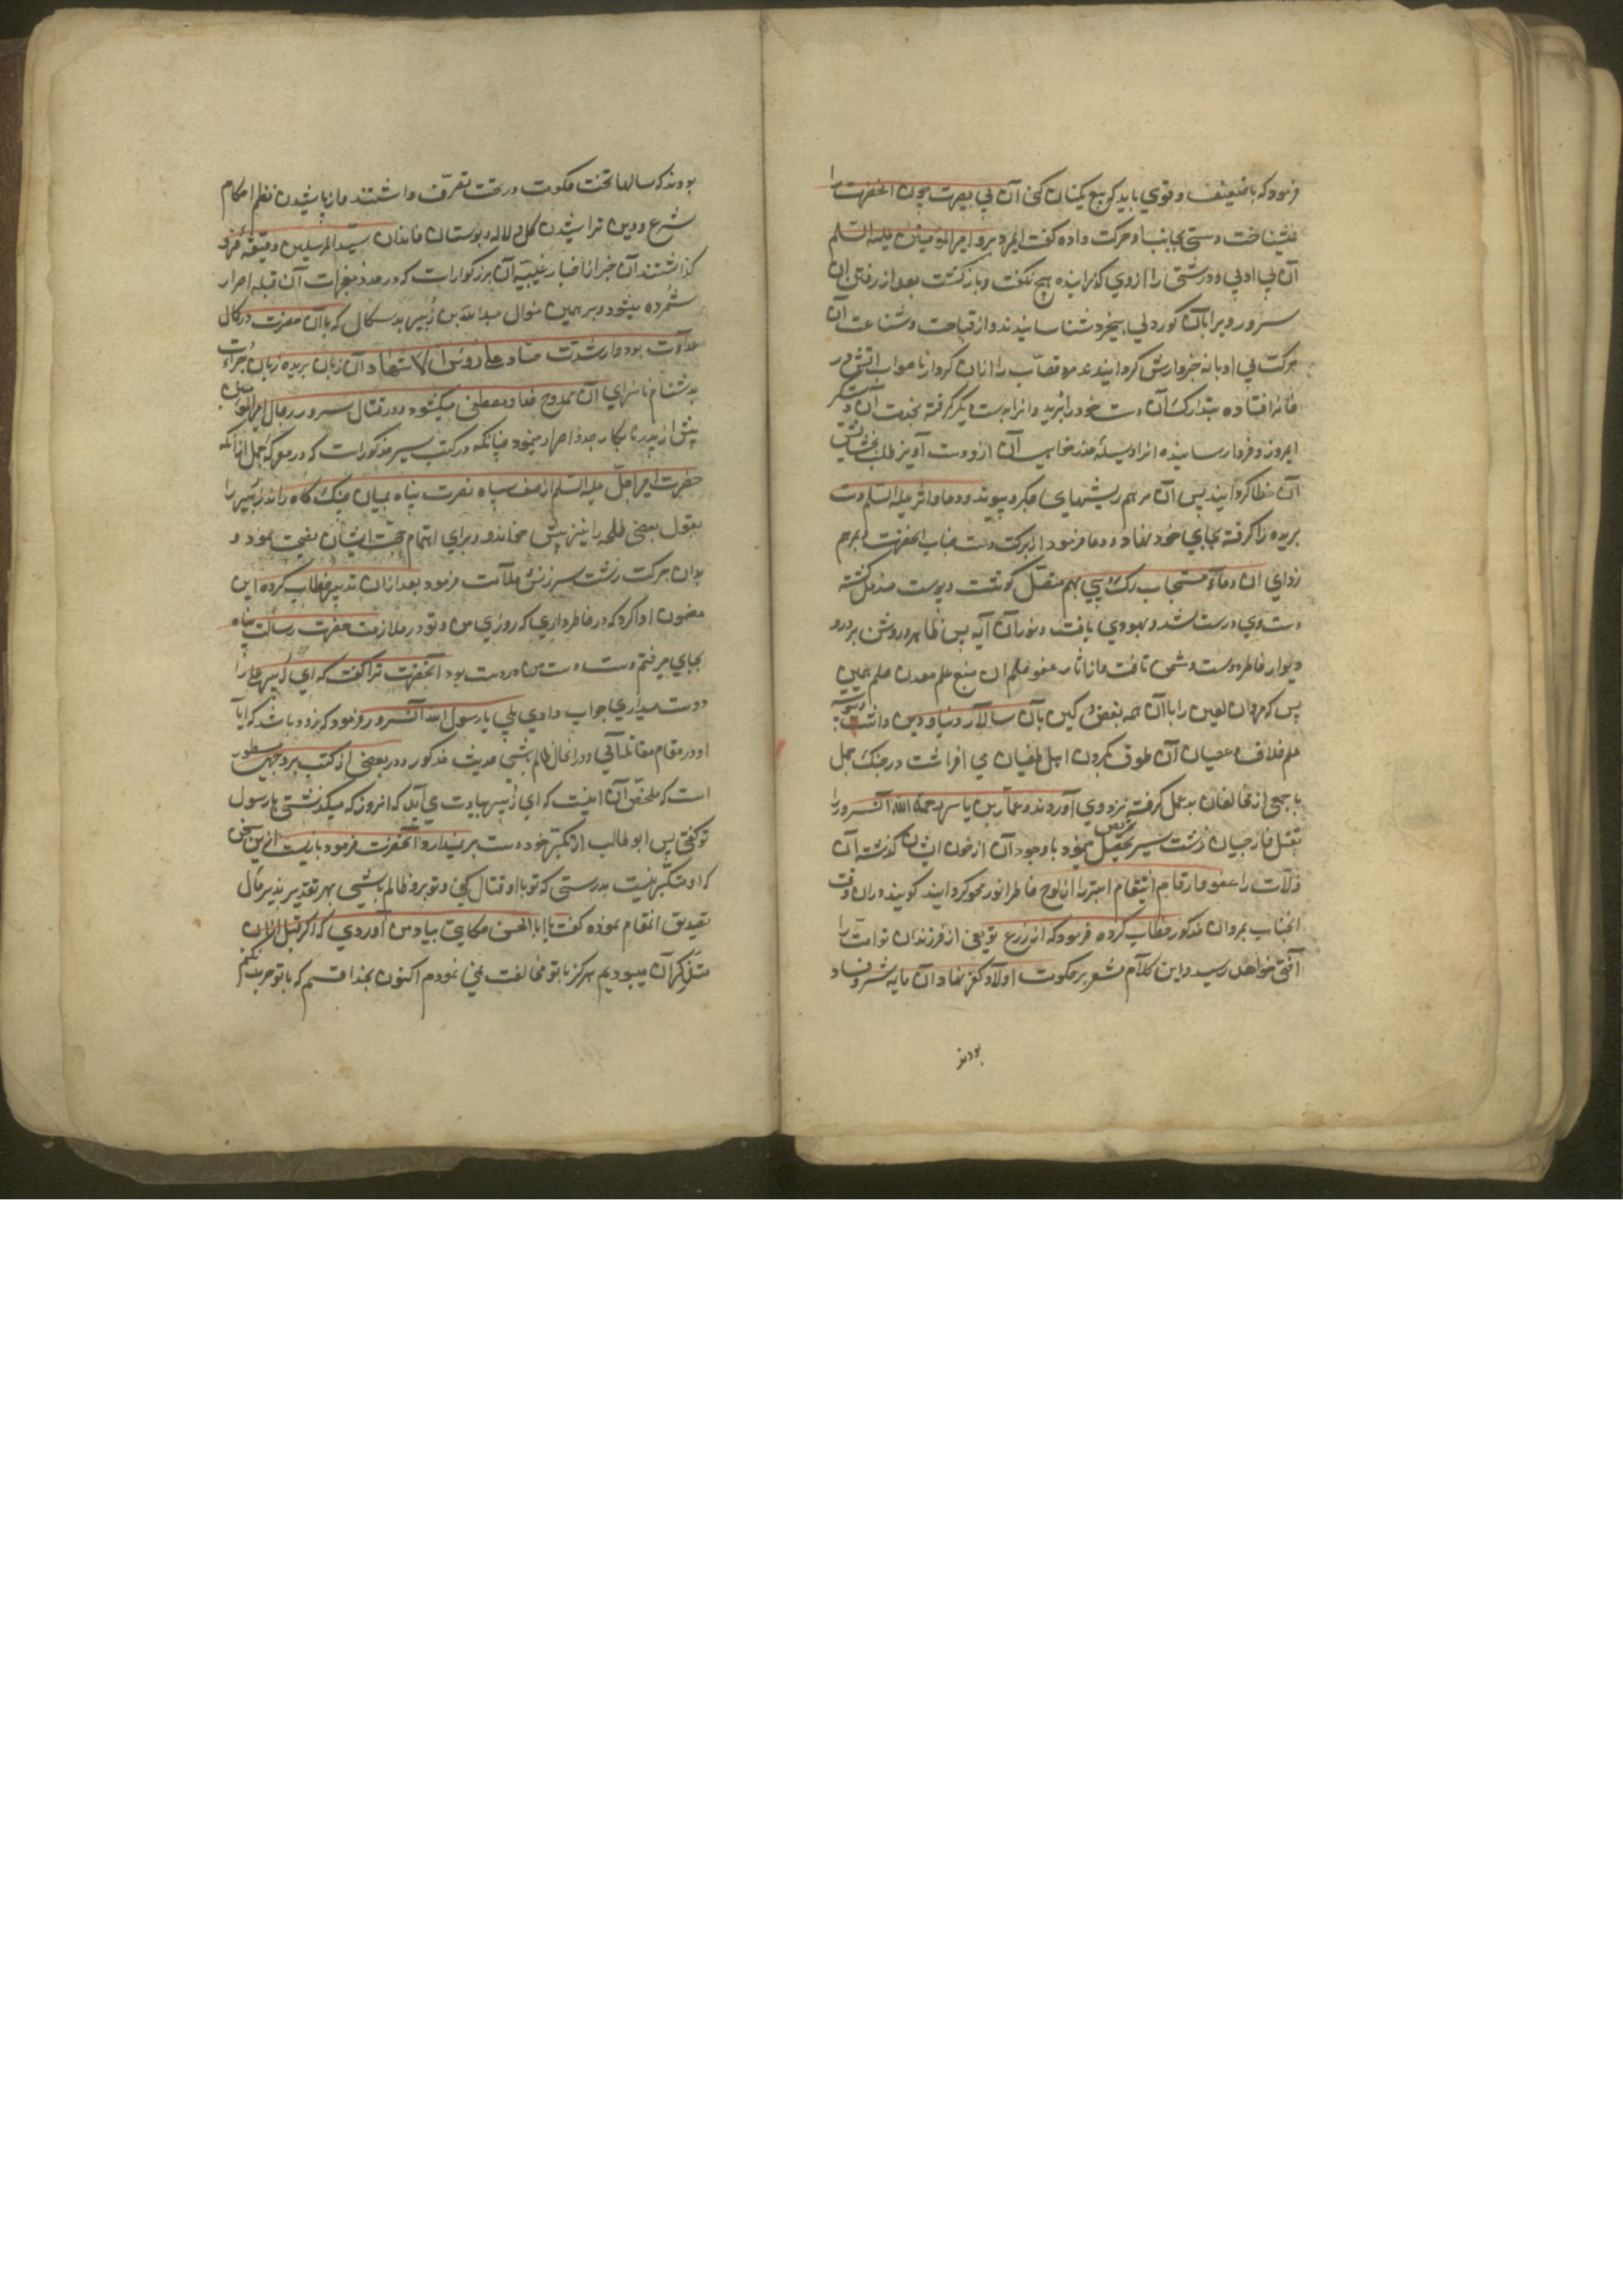 فرمود که با ضعیف و قوی باید که بیع یکسان کنی آن بی بصیرت چون آنحضرت را
نشناخت دستی بجانب او حرکت داده گفت ای مرد برو امیرالمؤمنین علیه السلم
آن بی ادبی و درشتی را از وی گذرانیده هیچ نگفت و باز گشت بعد از رفتن آن
سرور ویرا بآن کوردلی بیخرد شناسانیدند و از قباحت و شناعت آن
حرکت بی ادبانه خبردارش گردانیدند مرد قصاب را از آن کردار ناصواب آتش در
خانه افتاده بتدارک آن دست خود را ببرید و آنرا بدست دیگر گرفته بخدمت آن
امروز و فردا رسانیده آنرا وسیله عذرخواهی آن از دست آویز طلب بخشایش
آن خطا گردانید پس آن مرهم ریشهای جگر و پیوند دعا و اثر علیه السلم دست
بریده را گرفته بجای خود نهاد و دعا فرمود از برکت دست جناب آنحضرت مرهم
زدای آن دعاء مستجاب رگ و پی بهم متصل گوشت و پوست مندمل گشته
دست وی درست شد و بهبودی یافت و نور آن آیه بس ظاهر و روشن بر در و
دیوار خاطر دوست و دشمن تافت و از آثار عفو و حلم آن منبع علم معدن حلم همین
بس که مروان لعین را با آن همه بغض و کین بآن سالار دنیا و دین داشت
علم خلاف و عصیان آن طوق گردن اهل طغیان می افراشت در جنگ جمل
با جمعی از مخالفان بدعمل گرفته نزد وی آوردند و عمار بن یاسر رحمة الله آنسرور را
بقتل خارجیان زشت سیر تحریص مینمود با وجود آن از خون ایشان گذشته آن
زلات را عفو و ارقام انتقام ابتر را از لوح خاطر انور محو گردانید گویند در آن وقت
آنجناب بمروان مذکور خطاب کرده فرمود که از زرع تو یعنی از فرزندان تو امت را
آفتی خواهد رسید و این کلام مشعر بر حکومت اولاد کفر نهاد آن مایه شر و فساد
بودند
بودند که سالها تخت حکومت در تحت تصرف داشتند و از پاشیدن نظم احکام
شرع و دین و تراشیدن گل و لاله و بوستان خاندان سید المرسلین دقیقه فرو
گذاشتند آن خبر از اخبار غیبیه آن بزرگوار است که در عدد معجزات آن قبله احرار
شمرده میشود و بر همین منوال عبد الله بن زبیر بدسگال که با آن حضرت در کمال
عداوت بود و از شدت عناد علی رؤس الاشهاد آن زبان بریده زبان جرأت
بدشنام ناسزای آن ممدوح خدا و مصطفی میگشود و در قتال سرور رجال امیرالمؤمنین
بیش از پدر نابکار جد و اصرار مینمود چنانکه در کتب سیر مذکور است که در معرکه جمل از آنکه
حضرت امیر اجل علیه السلم از صف سپاه نصرت پناه بمیان جنگ گاه راند و زبیر را
بقول بعضی طلحه را نیز پیش خواند و برای اتمام حجت ایشان نصیحت نمود و
بدان حرکت زشت سرزنش و ملامت فرمود بعد از آن بزبیر خطاب کرده این
مضمون ادا کرد که در خاطر داری که روزی من و تو در ملازمت حضرت رسالت پناه
بجای میرفتم دست من در دست بود آنحضرت ترا گفت که ای زبیر علی را
دوست میداری جواب دادی بلی یا رسول الله آنسرور فرمود که زود باشد که آیا
او در مقام مقاتله آئی و در آنحال ظالم باشی حدیث مذکور در بعضی از کتب بر وجهی مسطور
است که ملخص آن اینست که ای زبیر بیادت می آید که آنروز که میگذشتی با رسول
تو گفتی پسر ابو طالب از تکبر خود دست بر نمیدارد آنحضرت فرمود باز ایست از این سخن
که او متکبر نیست بدرستی که تو با او قتال کنی و تو برو ظالم باشی بهر تقدیر زبیر حال
تصدیق آنمقام نموده گفت یا ابا الحسن حکایتی بیاد من آوردی که اگر قبل الان
متذکر آن میبودیم هرگز با تو مخالفت نمی نمودم اکنون بخدا قسم که با تو حرب نکنم